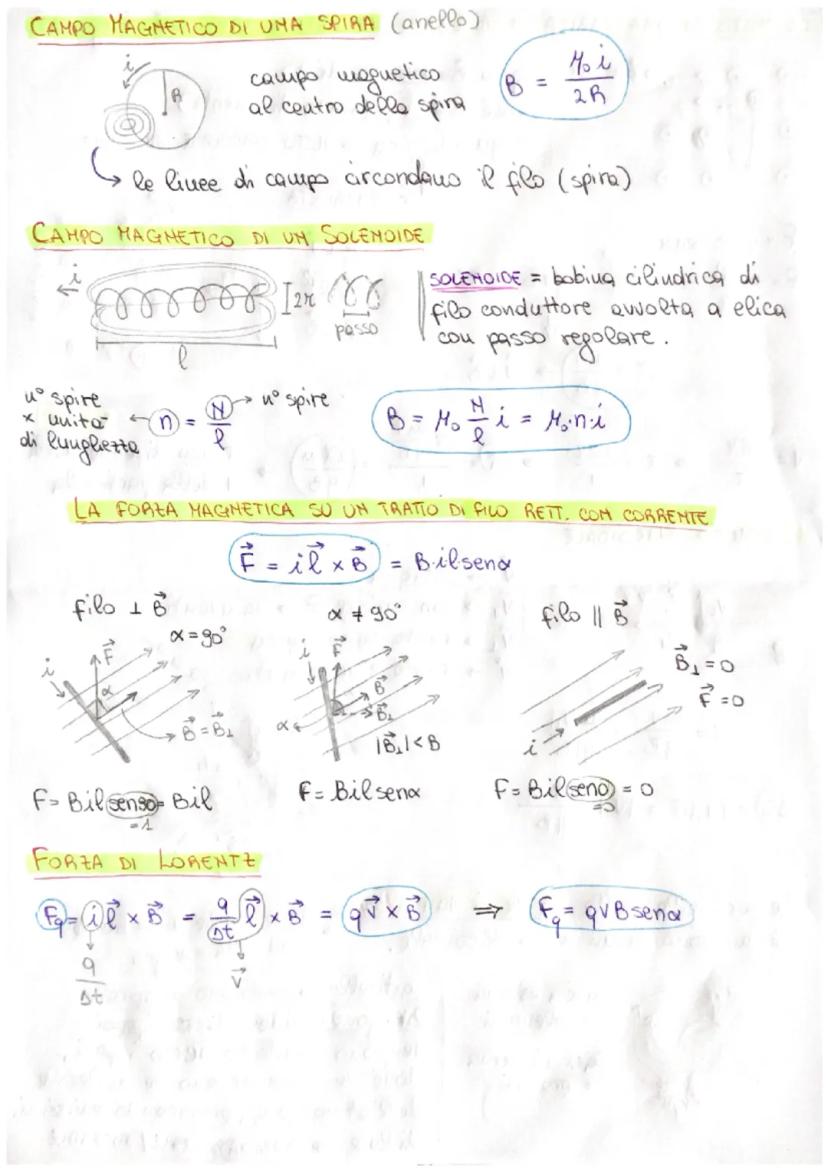 CAMPO MAGNETICO DI UNA SPIRA (anello)
i
R
campo magnetico
al centro della spira
B = μ₀ i / 2R
↳ le linee di campo circondano il filo (spira)
CAMPO MAGNETICO DI UN SOLENOIDE
i
2r
passo
l
SOLENOIDE = bobina cilindrica di
filo conduttore avvolta a elica
con passo regolare.
n° spire
x unità
di lunghezza
← n = N / l → n° spire
B = μ₀ N / l i = μ₀·n·i
LA FORZA MAGNETICA SU UN TRATTO DI FILO RETT. CON CORRENTE
F⃗ = i l⃗ × B⃗ = B·il·senα
filo ⊥ B⃗
α = 90°
i
F⃗
α
B⃗ = B⃗⊥
F = Bil sen90 = Bil
=1
α ≠ 90°
i
F⃗
B⃗
B⃗⊥
α
|B⃗⊥| < B
F = Bilsenα
filo || B⃗
B⃗⊥ = 0
F⃗ = 0
i
F = Bil sen0 = 0
=0
FORZA DI LORENTZ
Fq = i l⃗ × B⃗ = q / Δt l⃗ × B⃗ = q v⃗ × B⃗ ⇒ Fq = qvBsenα
q / Δt
v⃗